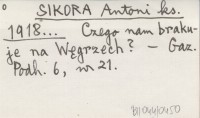 SIKORA Antoni ks.
1918... Czego nam braku-
je na Węgrzech? – Gaz.
Podh. 6, nr 21.